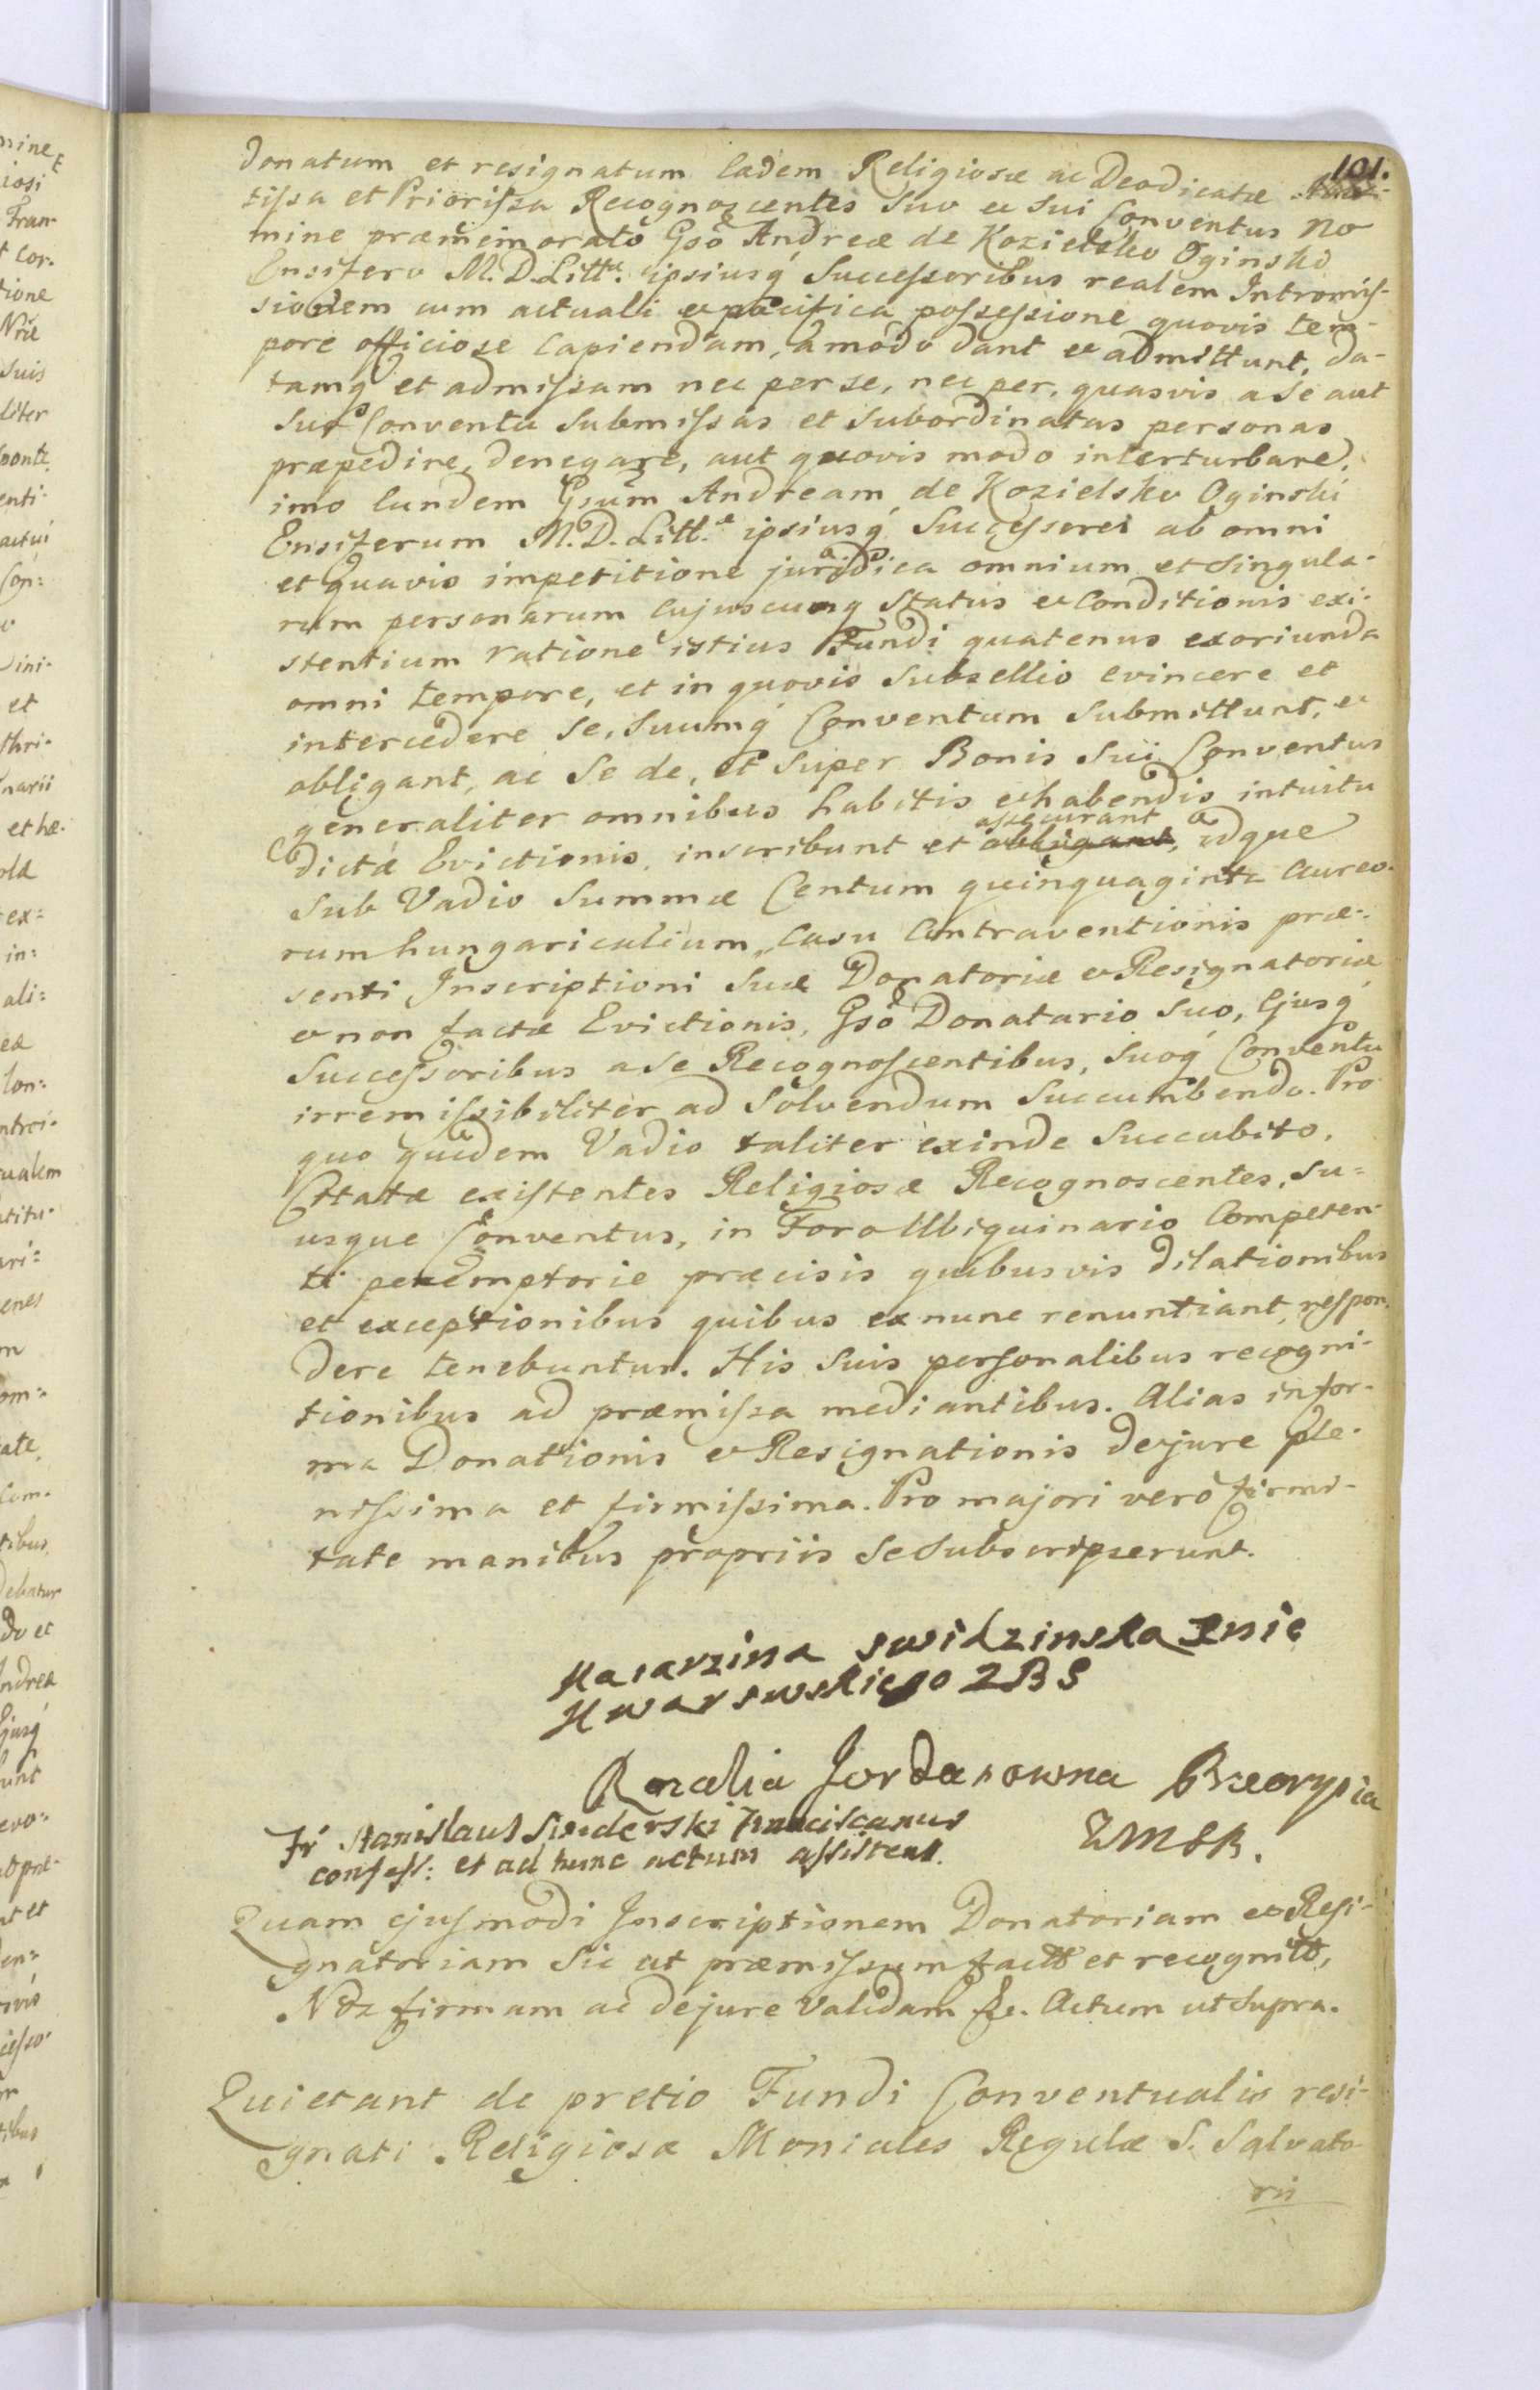 101.
donatum et resignatum Eadem Religiosæ ac Deodicatæ
tissa et Priorissa Recognoscentes Suo et Sui Conventus No
mine præmemorato Gsō Andreæ de Kozielsko Oginski
Ensifero M. D. Littæ ipsiusq́ Successoribus realem Intromis-
sionem cum actuali et pacifica possessione quovis tem-
pore officiose Capiendam, à modo dant et admittunt, da-
tamq́ et admissam nec per se, nec per, quasvis a Se aut
Suo Conventu Submissas et Subordinatas personas
præpedire, denegare, aut quovis modo interturbare,
imo Eundem Gsum Andream de Kozielsko Oginski
Ensiferum M. D. Litt.æ ipsiusq́ Successores ab omni
et quavis impetitione juridica omnium et Singula-
rum personarum Cujuscumq́ Status et Conditionis exi-
stentium ratione istius Fundi quatenus exoriunda
omni tempore, et in quovis Subsellio evincere et
intercedere Se, Suumq́ Conventum Submittunt, et
obligant, ac Se de, et Super Bonis Sui Conventus
generaliter omnibus habitis et habendis intuitu
assecurant
dictæ Evictionis, inscribunt et obligant, idque
Sub Vadio Summæ Centum quinquaginta Aureo-
rum hungaricalium, Casu Contraventionis præ-
senti Inscriptioni Suæ Donatoriæ et Resignatoriæ
et non factæ Evictionis, Gsō Donatario Suo, Ejusq́
Successoribus a Se Recognoscentibus, Suoq́ Conventu
irremissibiliter ad Solvendum Succumbendo. Pro
quo quidem Vadio taliter exinde Succubito,
Citatæ existentes Religiosæ Recognoscentes, Su-
usque Conventus, in Foro Ubiquinario Competen-
ti peremptorie præcisis quibusvis dilationibus
et exceptionibus quibus ex nunc renuntiant, respon-
dere tenebuntur. His Suis personalibus recogni-
tionibus ad præmissa mediantibus. Alias in for-
ma Donationis et Resignationis de jure ple-
nissima et firmissima. Pro majori verò firmi-
tate manibus propriis Se Subscripserunt.
Katarzina Swidzinska Xnie
Rozalia Jordanowna
Fr Stanislaus Franciscanus
confess: et ad hunc actum assistens.
Quam ejusmodi Inscriptionem Donatoriam et Resi-
gnatoriam Sic ut præmissum et recognit,
firmam ac de jure Validam &c. Actum ut Supra.
Quietant de pretio Fundi Conventualis resi-
gnati Religiosæ Moniales Regulæ S. Salvato-
rii